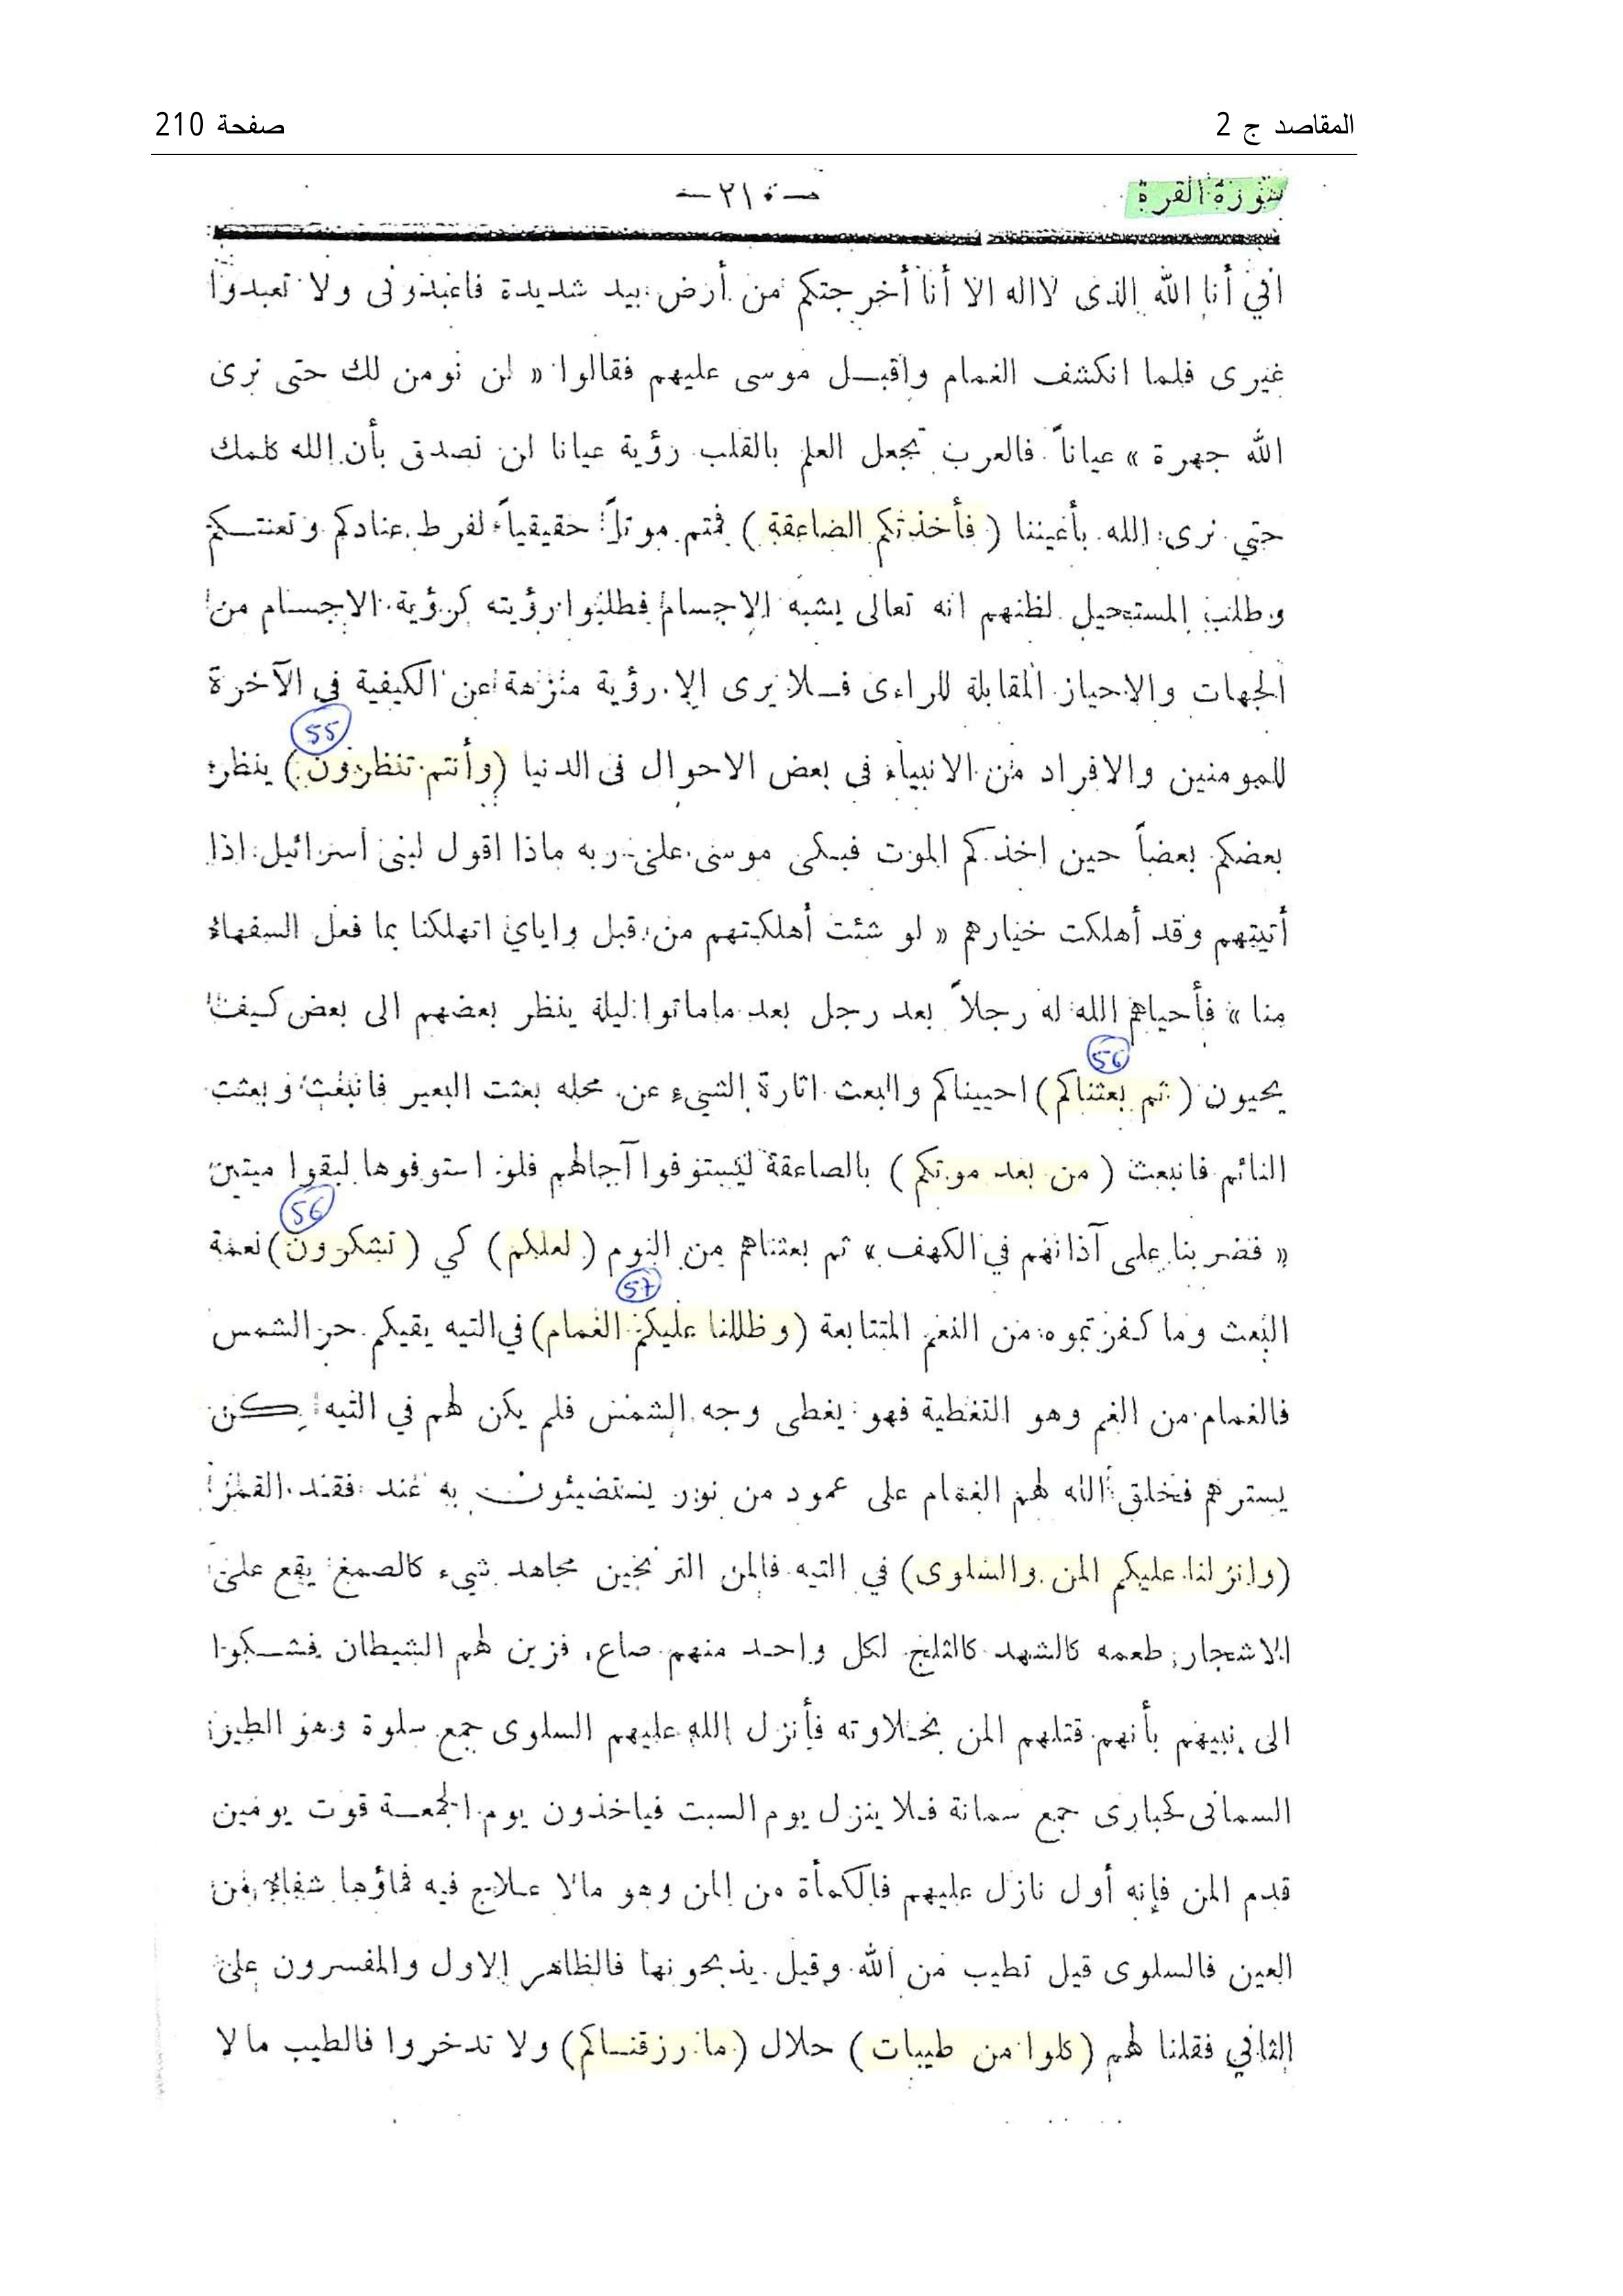 المقاصد ج 2
صفحة 210
سورة القرة
— ٢١٠ —
اني أنا الله الذى لااله الا أنا أخرجتكم من أرض بيد شديدة فاعبدونى ولا تعبدوا
غيرى فلما انكشف الغمام واقبل موسى عليهم فقالوا « لن نومن لك حتى نرى
الله جهرة » عياناً فالعرب تجعل العلم بالقلب رؤية عيانا لن نصدق بأن الله كلمك
حتي نرى الله بأعيننا ( فأخذتكم الصاعقة ) فمتم موتاً حقيقياً لفرط عنادكم وتعنتكم
وطلب المستحيل لظنهم انه تعالى يشبه الاجسام فطلبوا رؤيته كرؤية الاجسام من
الجهات والاحياز المقابلة للراءى فلا يرى الا رؤية منزهة عن الكيفية في الآخرة
55
للمومنين والافراد من الانبياء فى بعض الاحوال فى الدنيا (وأنتم تنظرون) ينظر
بعضكم بعضاً حين اخذكم الموت فبكى موسى على ربه ماذا اقول لبنى اسرائيل اذا
أتيتهم وقد أهلكت خيارهم « لو شئت أهلكتهم من قبل واياي اتهلكنا بما فعل السفهاء
منا » فأحياهم الله له رجلاً بعد رجل بعد ماماتوا ليلة ينظر بعضهم الى بعض كيف
56
يحيون ( ثم بعثناكم ) احييناكم والبعث اثارة الشيء عن محله بعثت البعير فانبعث وبعثت
النائم فانبعث ( من بعد موتكم ) بالصاعقة ليستوفوا آجالهم فلو استوفوها لبقوا ميتين
56
« فضربنا على آذانهم في الكهف » ثم بعثناهم من النوم ( لعلكم ) كي ( تشكرون ) نعمة
57
البعث وما كفرتموه من النعم المتتابعة (وظللنا عليكم الغمام) في التيه يقيكم حر الشمس
فالغمام من الغم وهو التغطية فهو يغطى وجه الشمس فلم يكن لهم في التيه كن
يسترهم فخلق الله لهم الغمام على عمود من نور يستضيئون به عند فقد القمر
(وانزلنا عليكم المن والسلوى) في التيه فالمن الترنجين مجاهد شيء كالصمغ يقع على
الاشجار طعمه كالشهد كالثلج لكل واحد منهم صاع فزين لهم الشيطان فشكوا
الى نبيهم بأنهم قتلهم المن بحلاوته فأنزل الله عليهم السلوى جمع سلوة وهو الطير
السمانى كحبارى جمع سمانة فلا ينزل يوم السبت فياخذون يوم الجمعة قوت يومين
قدم المن فإنه أول نازل عليهم فالكمأة من المن وهو مالا علاج فيه فماؤها شفاء من
العين فالسلوى قيل تطيب من الله وقيل يذبحونها فالظاهر الاول والمفسرون على
الثاني فقلنا لهم ( كلوا من طيبات ) حلال ( ما رزقناكم ) ولا تدخروا فالطيب مالا